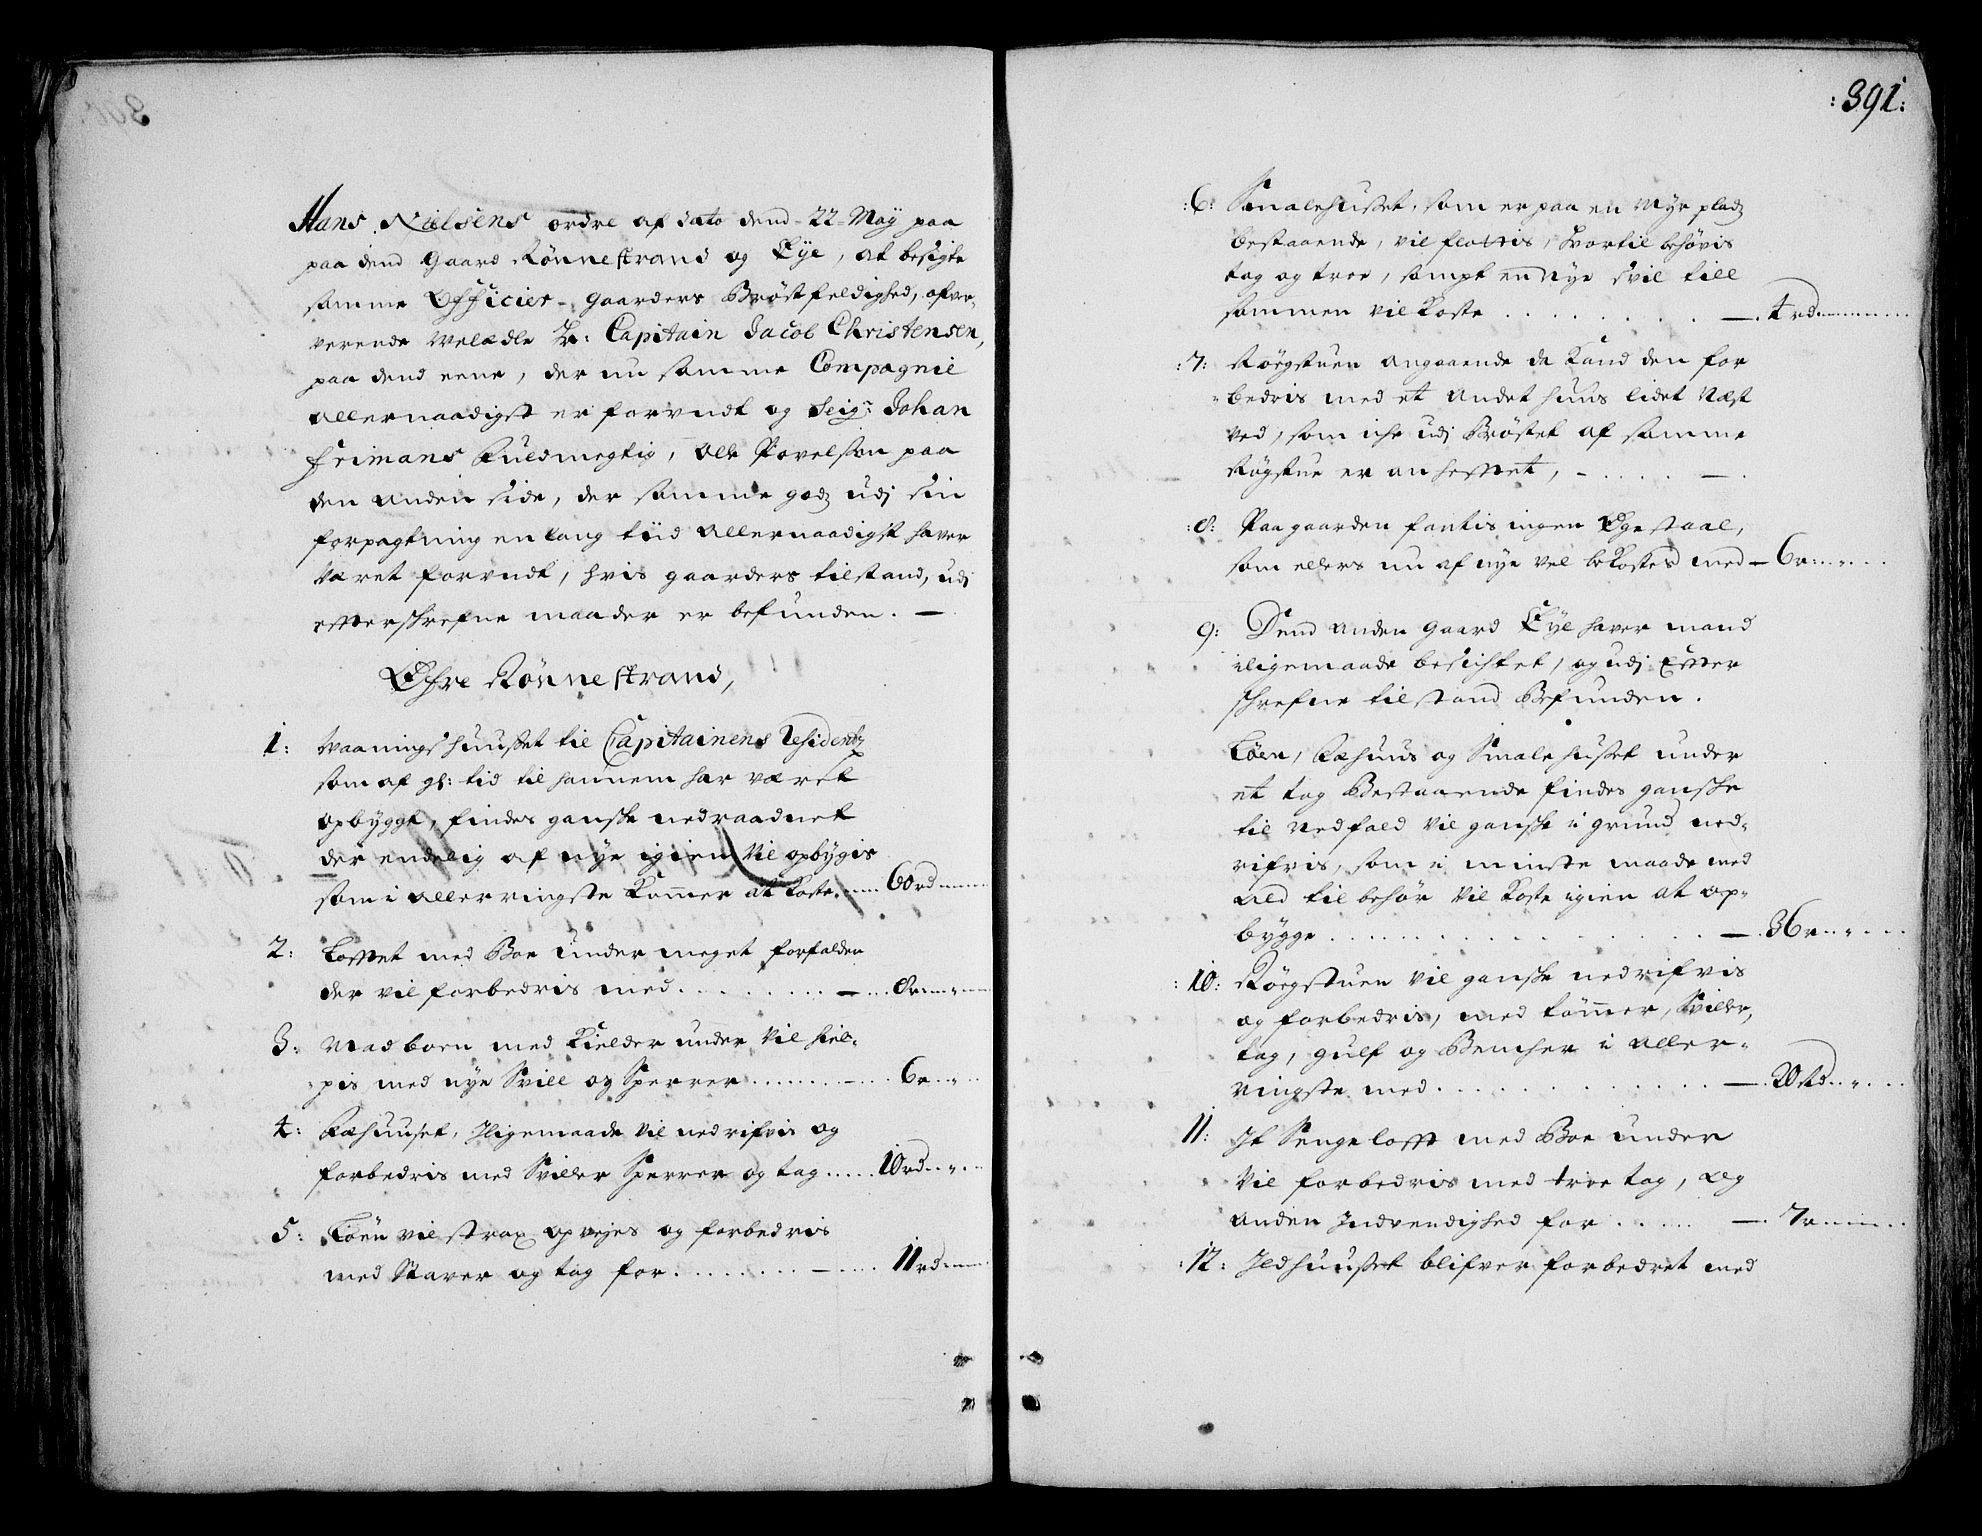 Hans Nielsens ordre af dato dend 22 Maÿ paa
paa dend gaard Rönnestrand og Eÿe, at besigte
samme Officier-gaarders Bröstfeldighed, ofver-
verende Welædle Hr: Capitain Jacob Christensen,
paa dend eene, der nu samme Compagnie
allernaadigst er forundt og Seigr: Johan
Frimans fuldmegtig, Ole Povelsen paa
den anden side, der samme godz udj sin
forpagtning en lang tiid allernaadigst haver
været forundt, hvis gaarders tilstand, udj
effterschrefne maader er befunden. —
Öfre Rönnestrand,
1: Waaningshuuset til Capitainens Residentz
som af gl: tid til hannem har været
opbÿggt, findes gansche nedraadnet
der endelig af nye igien vil opbÿgis
som i allerringste kommer at koste ..... 60 rd
2: Lofftet med Boe under meget forfalden
der vil forbedris med ........ 8 r
3: Madboen med Kielder under vil hiel-
pis med nye Svill og Sperrer ........ 6 r
4: Fæhuuset, Jligemaade vil nedrifvis og
forbedris med Sviller Sperrer og tag ..... 10 rd
5: Löen vil strax opvejes og forbedris
med Staver og tag for ........ 11 rd
:391:
:6: Smalehuset, som er paa en Myr pladz
bestaaende, vil flottis, hvortil behövis
tag og træe, sampt en nye svil till
sammen vil koste ........ 4 rd
:7: Rögstuen angaaende da kand den for
bedris med et andet huus lidet næst
ved, som iche udj Bröstet af samme
Rögstue er anhefftet, — .... —
:8: Paa gaarden fantis ingen Ege staal,
som ellers nu af nye vel bekostes med — 6 r
9: Dend anden gaard Eÿe haver mand
iligemaade besichtet, og udj Effter
schrefne tilstand Befunden.
Löen, Fæhuus og Smalehuset under
et tag Bestaaende findes gansche
til nedfald vil gansche i grund ned-
rifvis, som i minste maade med
ald tilbehör vil koste igien at op-
bÿgge ........ 36 r
:10: Rögstuen vil gansche nedrifvis
og forbedris, med tömmer, Sviller,
tag, gulf og Bencher i aller-
ringste med ........ 20 Rd
11: Jt Sengelofft med Boe under
vil forbedris med træe tag, og
anden Jndvendighed for ..... 7 r
:12: Jldhuuset blifver forbedret med